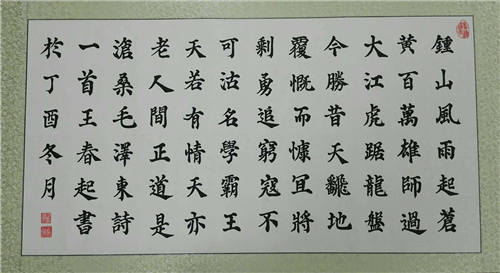 鍾山風雨起蒼
黄百萬雄師過
大江虎踞龍盤
今勝昔天飜地
覆慨而慷宜將
剩勇追窮寇不
可沽名學霸王
天若有情天亦
老人間正道是
滄桑毛澤東詩
一首王春起書
於丁酉冬月